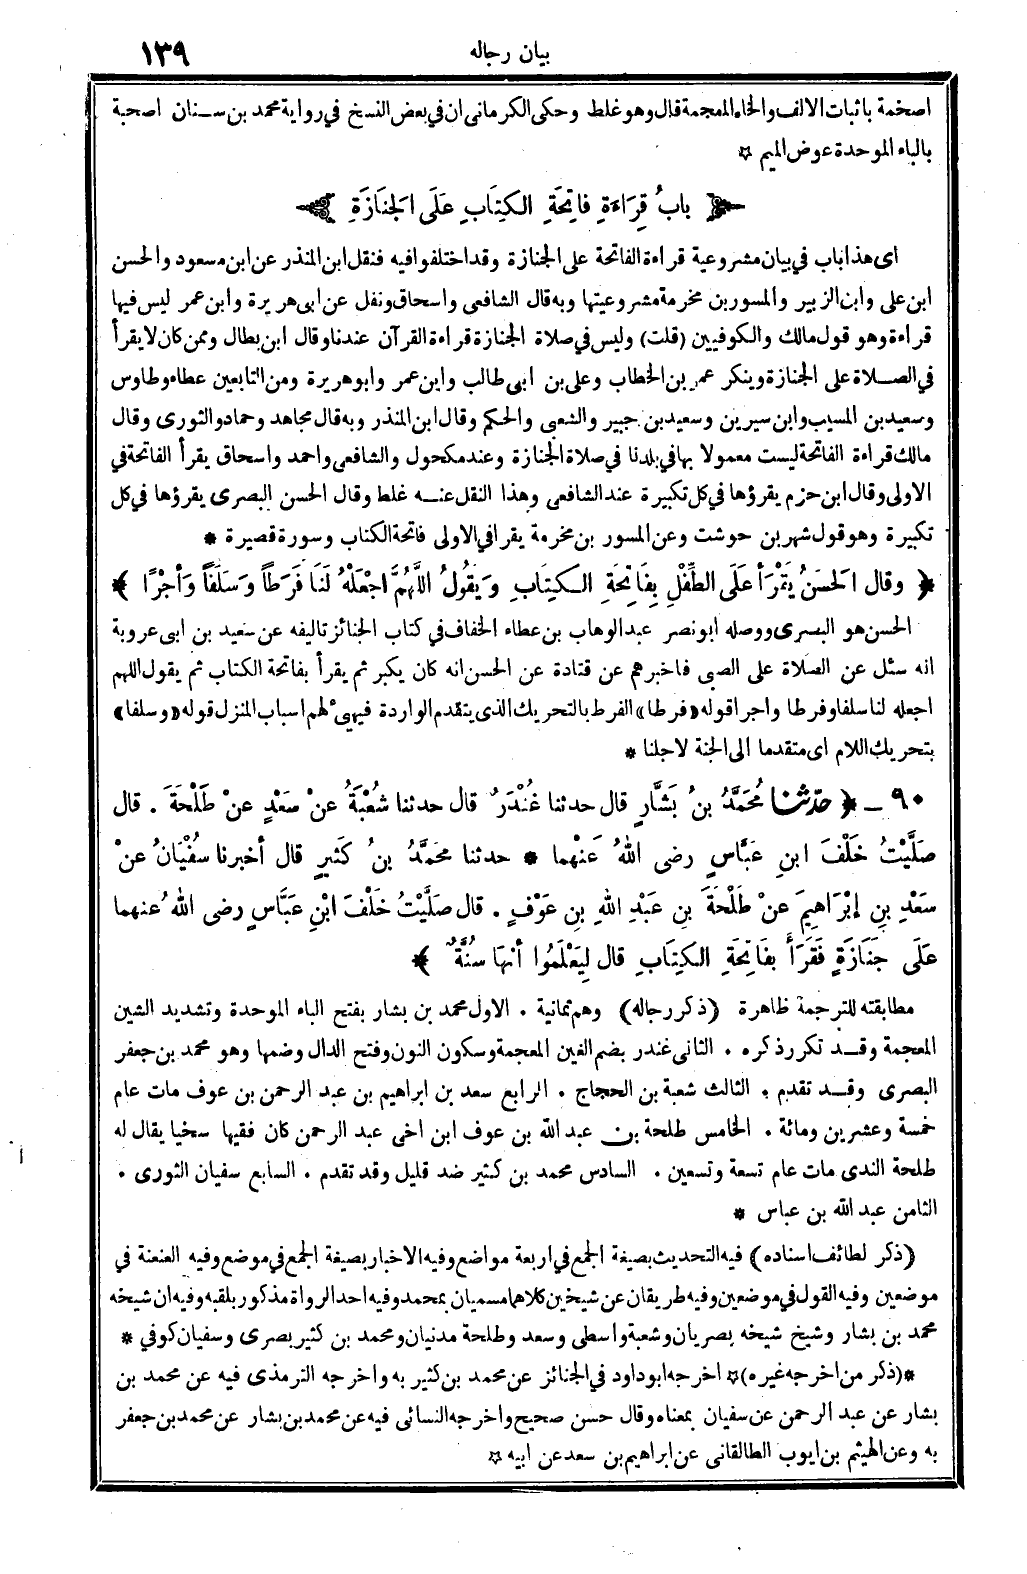 بيان رجاله ١٣٩
اصخمة باثبات الالف والخاء المعجمة قال وهو غلط وحكى الكرمانى ان فى بعض النسخ فى رواية محمد بن سنان اصحبة
بالباء الموحدة عوض الميم ☆
﴿ بابُ قِرَاءَةِ فاتِحَةِ الكِتَابِ عَلَى الجَنَازَةِ ﴾
اى هذا باب فى بيان مشروعية قراءة الفاتحة على الجنازة وقد اختلفوا فيه فنقل ابن المنذر عن ابن مسعود والحسن
ابن على وابن الزبير والمسور بن مخرمة مشروعيتها وبه قال الشافعى واسحاق ونقل عن ابى هريرة وابن عمر ليس فيها
قراءة وهو قول مالك والكوفيين (قلت) وليس فى صلاة الجنازة قراءة القرآن عندنا وقال ابن بطال وممن كان لا يقرأ
فى الصلاة على الجنازة وينكر عمر بن الخطاب وعلى بن ابى طالب وابن عمر وابو هريرة ومن التابعين عطاء وطاوس
وسعيد بن المسيب وابن سيرين وسعيد بن جبير والشعبى والحكم وقال ابن المنذر وبه قال مجاهد وحماد والثورى وقال
مالك قراءة الفاتحة ليست معمولا بها فى بلدنا فى صلاة الجنازة وعند مكحول والشافعى واحمد واسحاق يقرأ الفاتحة فى
الاولى وقال ابن حزم يقرؤها فى كل تكبيرة عند الشافعى وهذا النقل عنه غلط وقال الحسن البصرى يقرؤها فى كل
تكبيرة وهو قول شهر بن حوشت وعن المسور بن مخرمة يقرا فى الاولى فاتحة الكتاب وسورة قصيرة *
﴿ وقال الحَسَنُ يَقْرَأُ عَلَى الطِّفْلِ بِفَاتِحَةِ الكِتَابِ وَيَقُولُ اللَّهُمَّ اجْعَلْهُ لَنَا فَرَطاً وَسَلَفاً وَأَجْرًا ﴾
الحسن هو البصرى ووصله ابو نصر عبد الوهاب بن عطاء الخفاف فى كتاب الجنائز تاليفه عن سعيد بن ابى عروبة
انه سئل عن الصلاة على الصبى فاخبرهم عن قتادة عن الحسن انه كان يكبر ثم يقرأ بفاتحة الكتاب ثم يقول اللهم
اجعله لنا سلفا وفرطا واجرا قوله «فرطا» الفرط بالتحريك الذى يتقدم الواردة فيهئ لهم اسباب المنزل قوله «وسلفا»
بتحريك اللام اى متقدما الى الجنة لاجلنا *
٩٠ ـ ﴿ حدّثنا مُحَمَّدُ بنُ بَشَّارٍ قال حدثنا غُنْدَرٌ قال حدثنا شُعْبَةُ عنْ سَعْدٍ عنْ طَلْحَةَ . قال
صَلَّيْتُ خَلْفَ ابنِ عَبَّاسٍ رضى اللهُ عَنْهما * حدثنا محَمَّدُ بنُ كَثيرٍ قال أخبرنا سفْيَانُ عنْ
سَعْدِ بنِ إبْرَاهِيمَ عنْ طَلْحَةَ بنِ عَبْدِ اللهِ بنِ عَوْفٍ . قال صَلَّيْتُ خَلْفَ ابْنِ عَبَّاسٍ رضى اللهُ عنهما
عَلَى جَنَازَةٍ فَقَرَأَ بفَاتِحَةِ الكِتَابِ قال لِيَعْلَمُوا أنها سُنَّةٌ ﴾
مطابقته للترجمة ظاهرة (ذكر رجاله) وهم ثمانية . الاول محمد بن بشار بفتح الباء الموحدة وتشديد الشين
المعجمة وقد تكرر ذكره . الثانى غندر بضم الغين المعجمة وسكون النون وفتح الدال وضمها وهو محمد بن جعفر
البصرى وقد تقدم . الثالث شعبة بن الحجاج . الرابع سعد بن ابراهيم بن عبد الرحمن بن عوف مات عام
خمسة وعشرين ومائة . الخامس طلحة بن عبد الله بن عوف ابن اخى عبد الرحمن كان فقيها سخيا يقال له
طلحة الندى مات عام تسعة وتسعين . السادس محمد بن كثير ضد قليل وقد تقدم . السابع سفيان الثورى .
الثامن عبد الله بن عباس *
(ذكر لطائف اسناده) فيه التحديث بصيغة الجمع فى اربعة مواضع وفيه الاخبار بصيغة الجمع فى موضع وفيه العنعنة فى
موضعين وفيه القول فى موضعين وفيه طريقان عن شيخين كلاهما مسميان بمحمد وفيه احد الرواة مذكور بلقبه وفيه ان شيخه
محمد بن بشار وشيخ شيخه بصريان وشعبة واسطى وسعد وطلحة مدنيان ومحمد بن كثير بصرى وسفيان كوفى *
*(ذكر من اخرجه غيره)☆ اخرجه ابو داود فى الجنائز عن محمد بن كثير به واخرجه الترمذى فيه عن محمد بن
بشار عن عبد الرحمن عن سفيان بمعناه وقال حسن صحيح واخرجه النسائى فيه عن محمد بن بشار عن محمد بن جعفر
به وعن الهيثم بن ايوب الطالقانى عن ابراهيم بن سعد عن ابيه ☆